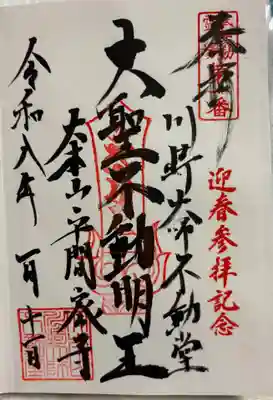 迎春参拝記念
奉拝
川崎大師不動堂
大聖不動明王
大本山平間寺
令和八年一月十一日